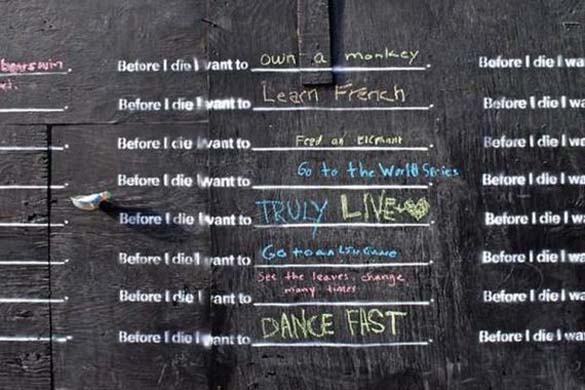 Before I die I want to own a monkey.
Before I die I wa
Before I die I want to Learn French.
Before I die I wa
Before I die I want to Feed an Elephant.
Before I die I wa
Before I die I want to Go to the World Series.
Before I die I wa
Before I die I want to TRULY LIVE.
Before I die I wa
Before I die I want to Go to an LSU Game.
Before I die I wa
Before I die I want to See the leaves change
many times.
Before I die I wa
Before I die I want to DANCE FAST.
Before I die I wa